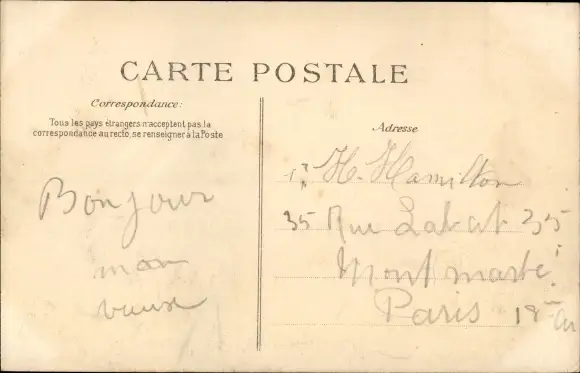 CARTE POSTALE
Correspondance:
Tous les pays étrangers n'acceptent pas la
correspondance au recto, se renseigner à la Poste
Bonjour
mon
vieux
Adresse
H. Hamilton
35 Rue Labat 35
Montmartre
Paris 18